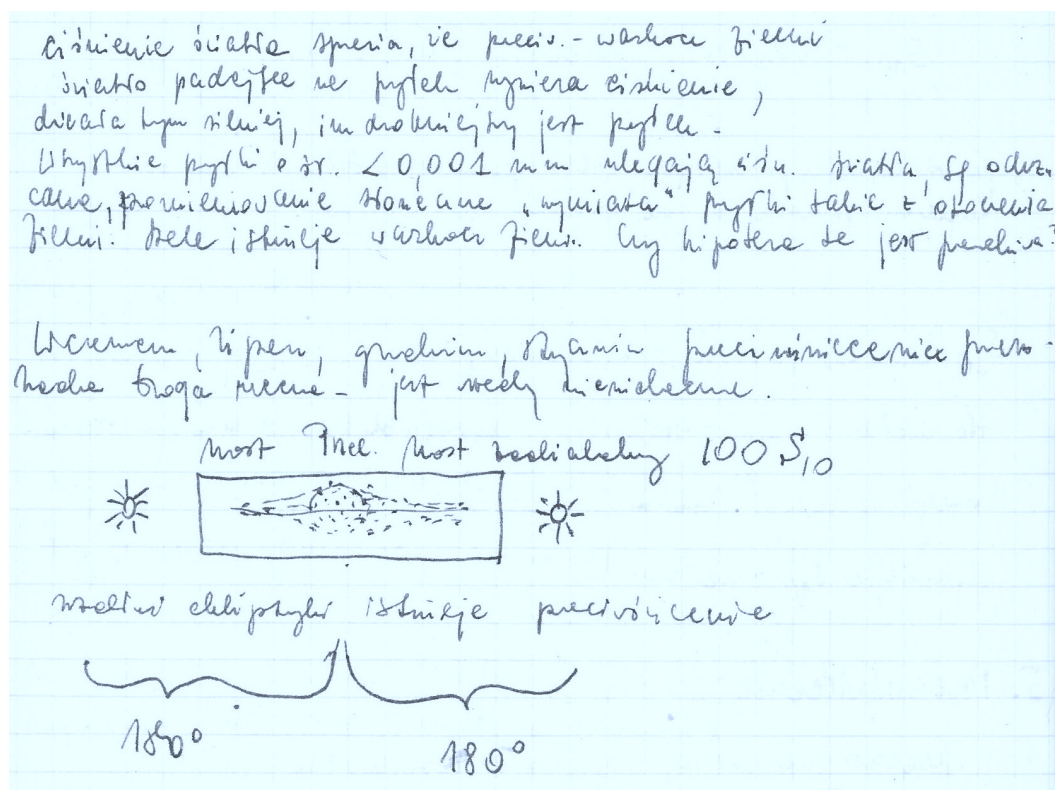 ciśnienie światła sprawia, że przeciw. - warkocz Ziemi
światło padające na pyłek wywiera ciśnienie,
działa tym silniej, im drobniejszy jest pyłek -
Wszystkie pyłki o śr. <0,001 mm ulegają ciśn. światła, są odrzu
cane, promieniowanie słoneczne „wymiata" pyłki takie z otoczenia
Ziemi. Stale istnieje warkocz Ziemi. Czy hipoteza ta jest prawdziwa?
W czerwcu, lipcu, grudniu, styczniu przeciwświecenie przes-
łania Droga Mleczna - jest wtedy niewidoczne.
most Prze. most zodiakalny 100 S10
wzdłuż ekliptyki istnieje przeciwświecenie
180° 180°